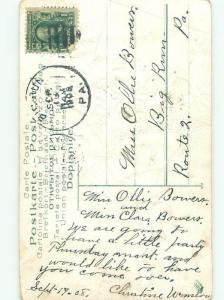 Miss Ollie Bowers
Big Run
Pa.
Route 2.
PA.
1908
Carte Postale
Postkarte - Post Card
Dopisnice
Miss Ollie Bowers
and
Miss Clara Bowers.
We are going to
have a little party
Thursday night and
would like to have
you come over.
Sept-19-08. Christine